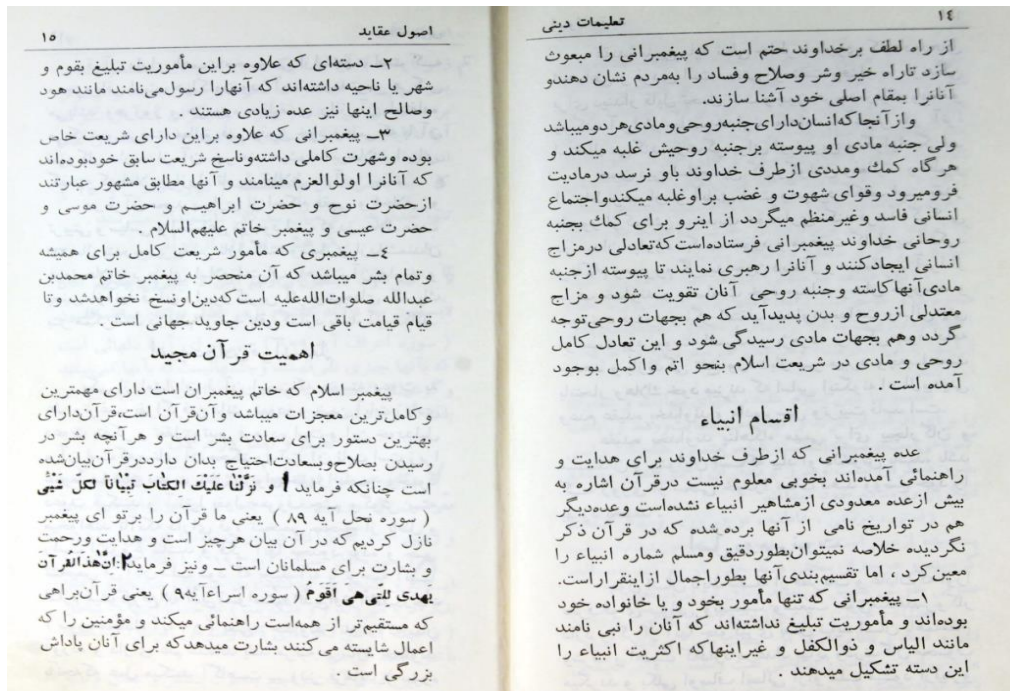 ١٤
تعلیمات دینی
از راه لطف برخداوند حتم است که پیغمبرانی را مبعوث
سازد تاراه خیر وشر وصلاح وفساد را بمردم نشان دهندو
آنانرا بمقام اصلی خود آشنا سازند.
واز آنجا که انسان دارای جنبه روحی ومادی هر دو میباشد
ولی جنبه مادی او پیوسته برجنبه روحیش غلبه میکند و
هرگاه کمك ومددی ازطرف خداوند باو نرسد درمادیت
فرومیرود وقوای شهوت و غضب براوغلبه میکندواجتماع
انسانی فاسد وغیرمنظم میگردد از اینرو برای کمك بجنبه
روحانی خداوند پیغمبرانی فرستاده است که تعادلی درمزاج
انسانی ایجادکنند و آنانرا رهبری نمایند تا پیوسته ازجنبه
مادی آنها کاسته وجنبه روحی آنان تقویت شود و مزاج
معتدلی ازروح و بدن پدیدآید که هم بجهات روحی توجه
گردد وهم بجهات مادی رسیدگی شود و این تعادل کامل
روحی و مادی در شریعت اسلام بنحو اتم واکمل بوجود
آمده است .
اقسام انبیاء
عده پیغمبرانی که ازطرف خداوند برای هدایت و
راهنمائی آمده‌اند بخوبی معلوم نیست درقرآن اشاره به
بیش ازعده معدودی ازمشاهیر انبیاء نشده‌است وعده‌دیگر
هم در تواریخ نامی از آنها برده شده که در قرآن ذکر
نگردیده خلاصه نمیتوان بطوردقیق ومسلم شماره انبیاء را
معین کرد ، اما تقسیم بندی آنها بطوراجمال ازاینقراراست.
١ــ پیغمبرانی که تنها مأمور بخود و یا خانواده خود
بوده‌اند و مأموریت تبلیغ نداشته‌اند که آنان را نبی نامند
مانند الیاس و ذوالکفل و غیراینهاکه اکثریت انبیاء را
این دسته تشکیل میدهند .
اصول عقاید
١٥
٢ــ دسته‌ای که علاوه براین مأموریت تبلیغ بقوم و
شهر یا ناحیه داشته‌اند که آنهارا رسول می‌نامند مانند هود
وصالح اینها نیز عده زیادی هستند .
٣ــ پیغمبرانی که علاوه براین دارای شریعت خاص
بوده وشهرت کاملی داشته وناسخ شریعت سابق خودبوده‌اند
که آنانرا اولوالعزم مینامند و آنها مطابق مشهور عبارتند
ازحضرت نوح و حضرت ابراهیم و حضرت موسی و
حضرت عیسی و پیغمبر خاتم علیهم‌السلام .
٤ــ پیغمبری که مأمور شریعت کامل برای همیشه
وتمام بشر میباشد که آن منحصر به پیغمبر خاتم محمدبن
عبدالله صلوات‌الله‌علیه است که‌دین‌اونسخ نخواهدشد وتا
قیام قیامت باقی است ودین جاوید جهانی است .
اهمیت قرآن مجید
پیغمبر اسلام که خاتم پیغمبران است دارای مهمترین
و کامل‌ترین معجزات میباشد وآن قرآن است،قرآن دارای
بهترین دستور برای سعادت بشر است و هرآنچه بشر در
رسیدن بصلاح وسعادت احتیاج بدان دارددرقرآن بیان‌شده
است چنانکه فرماید ١ و نَزَّلْنا عَلیكَ الکِتابَ تِبْیاناً لکُلّ شَیْئی
( سوره نحل آیه ٨٩ ) یعنی ما قرآن را برتو ای پیغمبر
نازل کردیم که در آن بیان هرچیز است و هدایت ورحمت
و بشارت برای مسلمانان است ــ ونیز فرماید ٢: اِنَّ هٰذَالقُرآنَ
یَهدی لِلَّتی هِیَ اَقوَمُ ( سوره اسراءآیه ٩ ) یعنی قرآن براهی
که مستقیم‌تر از همه‌است راهنمائی میکند و مؤمنین را که
اعمال شایسته می کنند بشارت میدهدکه برای آنان پاداش
بزرگی است .